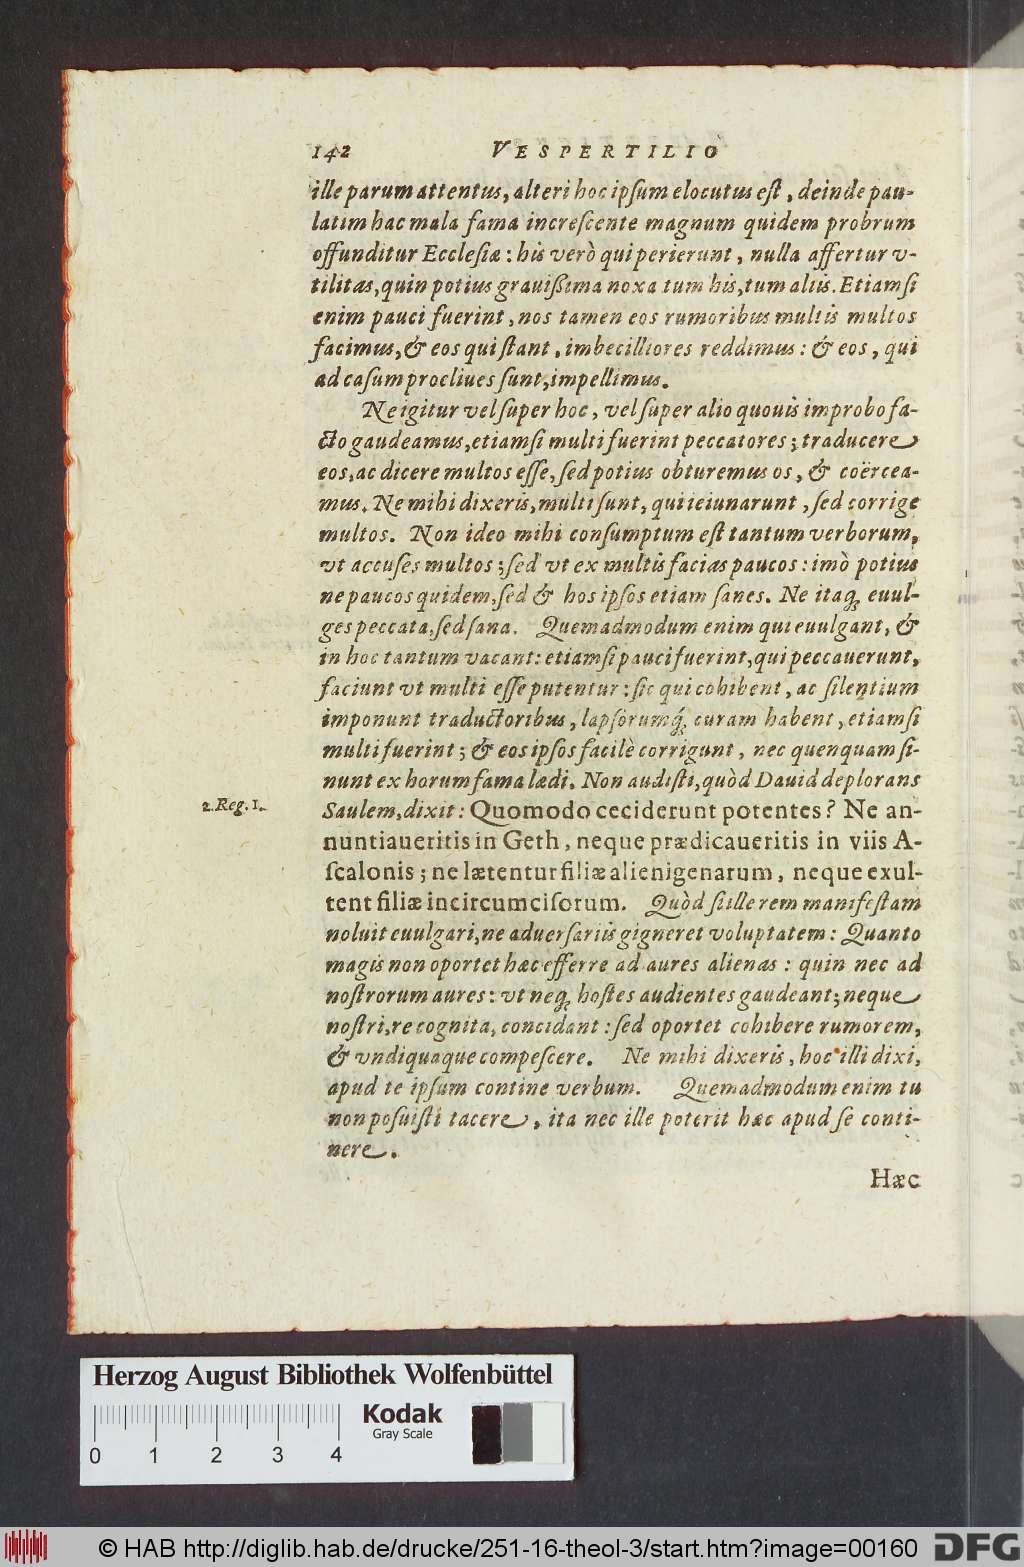 142 VESPERTILIO
ille parum attentus, alteri hoc ipſum elocutus eſt, deinde pau-
latim hac mala fama increſcente magnum quidem probrum
offunditur Eccleſiæ: his verò qui perierunt, nulla affertur v-
tilitas, quin potius grauißima noxa tum his, tum aliis. Etiamſi
enim pauci fuerint, nos tamen eos rumoribus multis multos
facimus, & eos qui ſtant, imbecilliores reddimus: & eos, qui
ad caſum procliues ſunt, impellimus.
Ne igitur vel ſuper hoc, vel ſuper alio quouis improbo fa-
cto gaudeamus, etiamſi multi fuerint peccatores; traducere
eos, ac dicere multos eſſe, ſed potius obturemus os, & coërcea-
mus. Ne mihi dixeris, multi ſunt, qui ieiunarunt, ſed corrige
multos. Non ideo mihi conſumptum eſt tantum verborum,
vt accuſes multos; ſed vt ex multis facias paucos: imò potius
ne paucos quidem, ſed & hos ipſos etiam ſanes. Ne itaq; euul-
ges peccata, ſed ſana. Quemadmodum enim qui euulgant, &
in hoc tantum vacant: etiamſi pauci fuerint, qui peccauerunt,
faciunt vt multi eſſe putentur: ſic qui cohibent, ac ſilentium
imponunt traductoribus, lapſorumq́; curam habent, etiamſi
multi fuerint; & eos ipſos facilè corrigunt, nec quenquam ſi-
nunt ex horum fama lædi. Non audiſti, quòd Dauid deplorans
2. Reg. 1. Saulem, dixit: Quomodo ceciderunt potentes? Ne an-
nuntiaueritis in Geth, neque prædicaueritis in viis A-
ſcalonis; ne lætentur filiæ alienigenarum, neque exul-
tent filiæ incircumciſorum. Quòd ſi ille rem manifeſtam
noluit euulgari, ne aduerſariis gigneret voluptatem: Quanto
magis non oportet hæc efferre ad aures alienas: quin nec ad
noſtrorum aures: vt neq; hoſtes audientes gaudeant; neque
noſtri, re cognita, concidant: ſed oportet cohibere rumorem,
& vndiquaque compeſcere. Ne mihi dixeris, hoc illi dixi,
apud te ipſum contine verbum. Quemadmodum enim tu
non poſuiſti tacere, ita nec ille poterit hæc apud ſe conti-
nere.
Hæc
Herzog August Bibliothek Wolfenbüttel
Kodak
Gray Scale
0 1 2 3 4
© HAB http://diglib.hab.de/drucke/251-16-theol-3/start.htm?image=00160
DFG